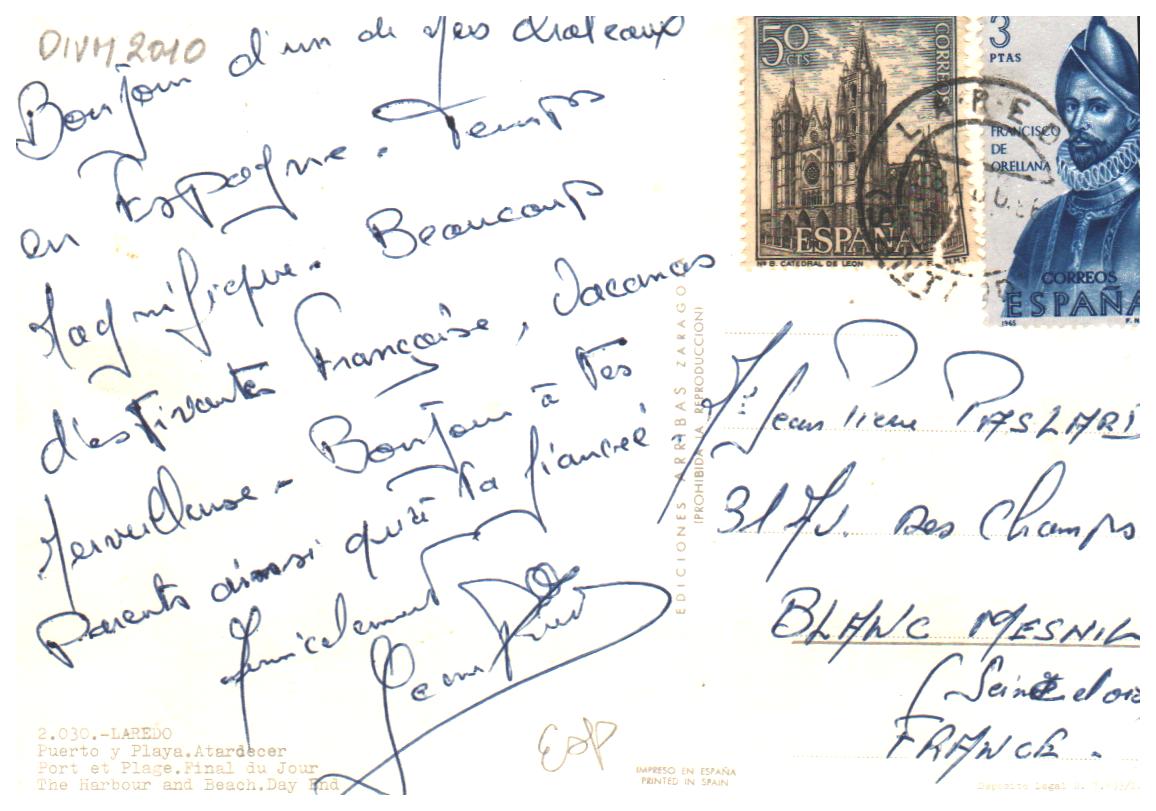 DIVM 2010
Bonjour d'un de mes chateaux
en Espagne. Temps
Magnifique. Beaucoup
d'estivantes Françaises, Vacances
Merveilleuse. Bonjour à tes
parents ainsi qu'à ta fiancée.
Amicalement
Jean
2.030.-LAREDO
Puerto y Playa.Atardecer
Port et Plage.Final du Jour
The Harbour and Beach.Day End
ESP
EDICIONES ARRIBAS ZARAGO
(PROHIBIDA LA REPRODUCCION)
IMPRESO EN ESPAÑA
PRINTED IN SPAIN
50 CTS
CORREOS
ESPAÑA
Nº 8. CATEDRAL DE LEON F.N.M.T
3
PTAS
FRANCISCO
DE
ORELLANA
CORREOS
ESPAÑA
1965 F.N
Mr Jean Pierre PASLARD
31 Av. des Champs
BLANC MESNIL
(Seine et oise
FRANCE.
Deposito Legal B.